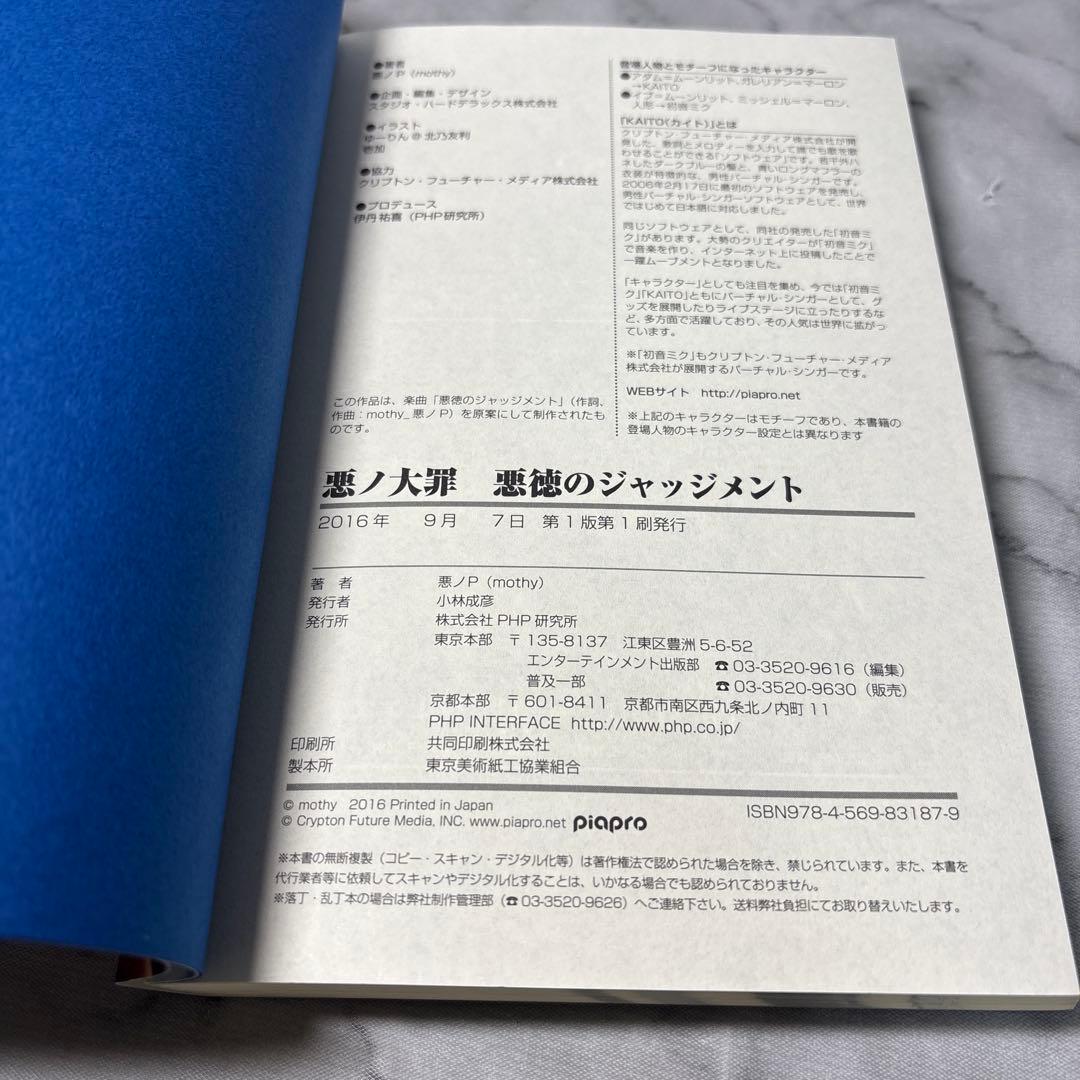 ●著者
悪ノP（mothy）
●企画・編集・デザイン
スタジオ・ハードデラックス株式会社
●イラスト
ゆーりん@北乃友利
壱加
●協力
クリプトン・フューチャー・メディア株式会社
●プロデュース
伊丹祐喜（PHP研究所）
この作品は、楽曲「悪徳のジャッジメント」（作詞、
作曲：mothy_悪ノP）を原案にして制作されたも
のです。
登場人物とモチーフになったキャラクター
●アダム=ムーンリット、ガレリアン=マーロン
→KAITO
●イブ=ムーンリット、ミッシェル=マーロン、
人形→初音ミク
「KAITO（カイト）」とは
クリプトン・フューチャー・メディア株式会社が開
発した、歌詞とメロディーを入力して誰でも歌を歌
わせることができる「ソフトウェア」です。若干外ハ
ネしたダークブルーの髪と、青いロングマフラーの
衣装が特徴的な、男性バーチャル・シンガーです。
2006年2月17日に最初のソフトウェアを発売し、
男性バーチャル・シンガーソフトウェアとして、世界
ではじめて日本語に対応しました。
同じソフトウェアとして、同社の発売した「初音ミ
ク」があります。大勢のクリエイターが「初音ミク」
で音楽を作り、インターネット上に投稿したことで
一躍ムーブメントとなりました。
「キャラクター」としても注目を集め、今では「初音ミ
ク」「KAITO」ともにバーチャル・シンガーとして、グ
ッズを展開したりライブステージに立ったりするな
ど、多方面で活躍しており、その人気は世界に拡がっ
ています。
※「初音ミク」もクリプトン・フューチャー・メディア
株式会社が展開するバーチャル・シンガーです。
WEBサイト http://piapro.net
※上記のキャラクターはモチーフであり、本書籍の
登場人物のキャラクター設定とは異なります
悪ノ大罪 悪徳のジャッジメント
2016年 9月 7日 第1版第1刷発行
著 者 悪ノP（mothy）
発行者 小林成彦
発行所 株式会社PHP研究所
東京本部 〒135-8137 江東区豊洲5-6-52
エンターテインメント出版部 ☎03-3520-9616（編集）
普及一部 ☎03-3520-9630（販売）
京都本部 〒601-8411 京都市南区西九条北ノ内町11
PHP INTERFACE http://www.php.co.jp/
印刷所 共同印刷株式会社
製本所 東京美術紙工協業組合
© mothy 2016 Printed in Japan
© Crypton Future Media, INC. www.piapro.net piapro
ISBN978-4-569-83187-9
※本書の無断複製（コピー・スキャン・デジタル化等）は著作権法で認められた場合を除き、禁じられています。また、本書を
代行業者等に依頼してスキャンやデジタル化することは、いかなる場合でも認められておりません。
※落丁・乱丁本の場合は弊社制作管理部（☎03-3520-9626）へご連絡下さい。送料弊社負担にてお取り替えいたします。